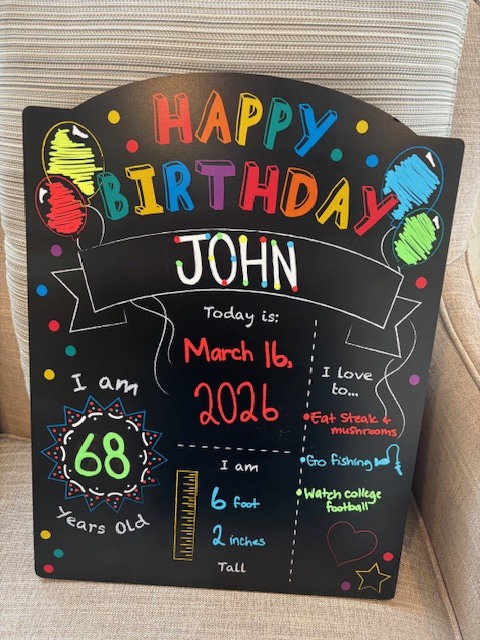 HAPPY
BIRTHDAY
JOHN
Today is:
March 16,
2026
I am
68
Years Old
I am
6 foot
2 inches
Tall
I love
to...
•Eat Steak &
mushrooms
•Go fishing
•Watch college
football